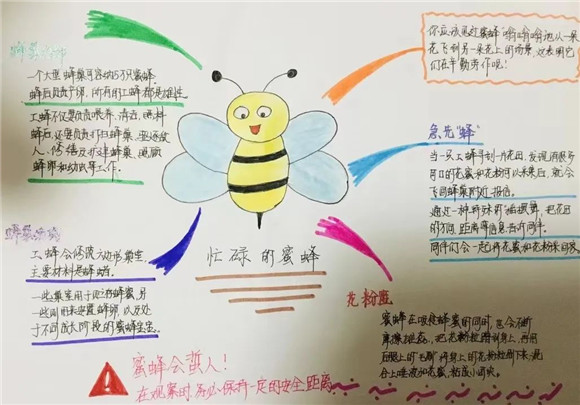 蜂巢内部
一个大型蜂巢可容纳5万只蜜蜂,
蜂后负责产卵,所有的工蜂都是雌性,
工蜂不仅要负责喂养、清洁、照料
蜂后,还要负责打扫蜂巢、驱逐敌
人、修缮及扩建蜂巢、照顾
蜂卵和幼虫等工作。
你应该见过蜜蜂嗡嗡嗡地从一朵
花飞到另一朵花上的场景,这表明它
们在辛勤劳作呢!
急先"蜂"
当一只工蜂寻到一片花田,发现
可口的花蜜和花粉可以采集后,就会
飞回蜂巢附近报信。
通过一种特殊的摇摆舞,把花田
的方向、距离等信息告诉同伴。
同伴们会一起将花蜜和花粉采回家。
忙碌的蜜蜂
工蜂会修筑六边形巢室,
主要材料是蜂蜡。
一些巢室用于贮存蜂蜜,另
一些则用来安置蜂卵,以及处
于不同成长阶段的蜜蜂宝宝。
花粉篮
蜜蜂在吸食蜂蜜的同时,也会不断
摩擦雄蕊,把花粉粒蹭到身上,再用
后腿上的毛刷将身上的花粉粒刷下来,混
合上唾液和花蜜,粘成小团块。
蜜蜂会蜇人!
在观察时,务必保持一定的安全距离